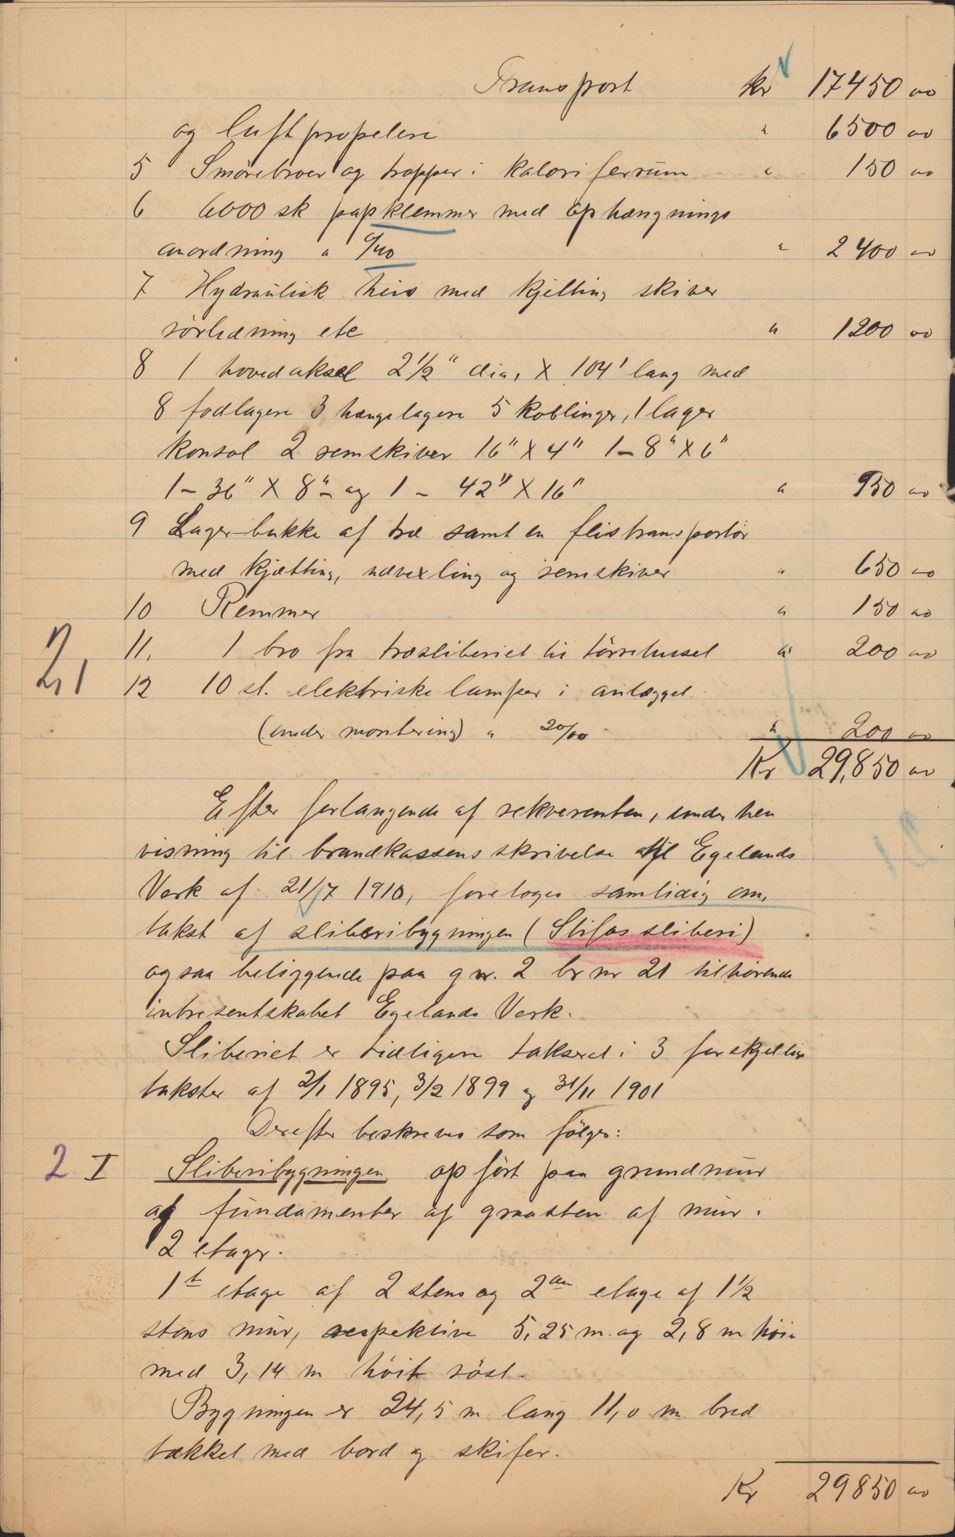 Transport Kr 17450 00
og luftpropelere " 6500 00
5 Smørebroer og trapper i kaloriferrum " 150 00
6 6000 sk papklemmer med ophængnings
anordning a 0/40 " 2400 00
7 Hydraulisk heis med kjetting skiver
rörledning etc " 1200 00
8 1 hovedaksel 2 1/2" dia, X 104' lang med
8 fodlagere 3 hængelagere 5 koblinger, 1 lager
konsol 2 remskiver 16" X 4" 1 – 8" X 6"
1 – 36" X 8" – og 1 – 42" X 16" " 950 00
9 Lagerbukke af træ samt en flistransportör
med kjætting, udvexling og remskiver " 650 00
10 Remmer " 150 00
11. 1 bro fra træsliberiet til törrehuset " 200 00
21
12 10 st. elektriske lamper i anlægget
(under montering) a 20/00 " 200 00
Kr 29,850 00
Efter forlangende af rekvirenten, under hen
visning til brandkassens skrivelse til Egelands
Verk af 21/7 1910, foretoges samtidig om,
takst af sliberibygningen (Stifossliberi)
ogsaa beliggende paa g nr. 2 br nr 21 tilhörende
intresentskabet Egelands Verk.
Sliberiet er tidligere takseret i 3 forskjellige
takster af 2/1 1895, 3/2 1899 og 31/11 1901
Derefter beskreves som følger:
2 I Sliberibygningen opfört paa grundmur
og fundamenter af graasten af mur i
2 etager.
1te etage af 2 stens og 2den etage af 1 1/2
stens mur, respektive 5,25 m. og 2,8 m höie
med 3,14 m höit röst.
Bygningen er 24,5 m lang 11,0 m bred
tækket med bord og skifer.
Kr 29850 00